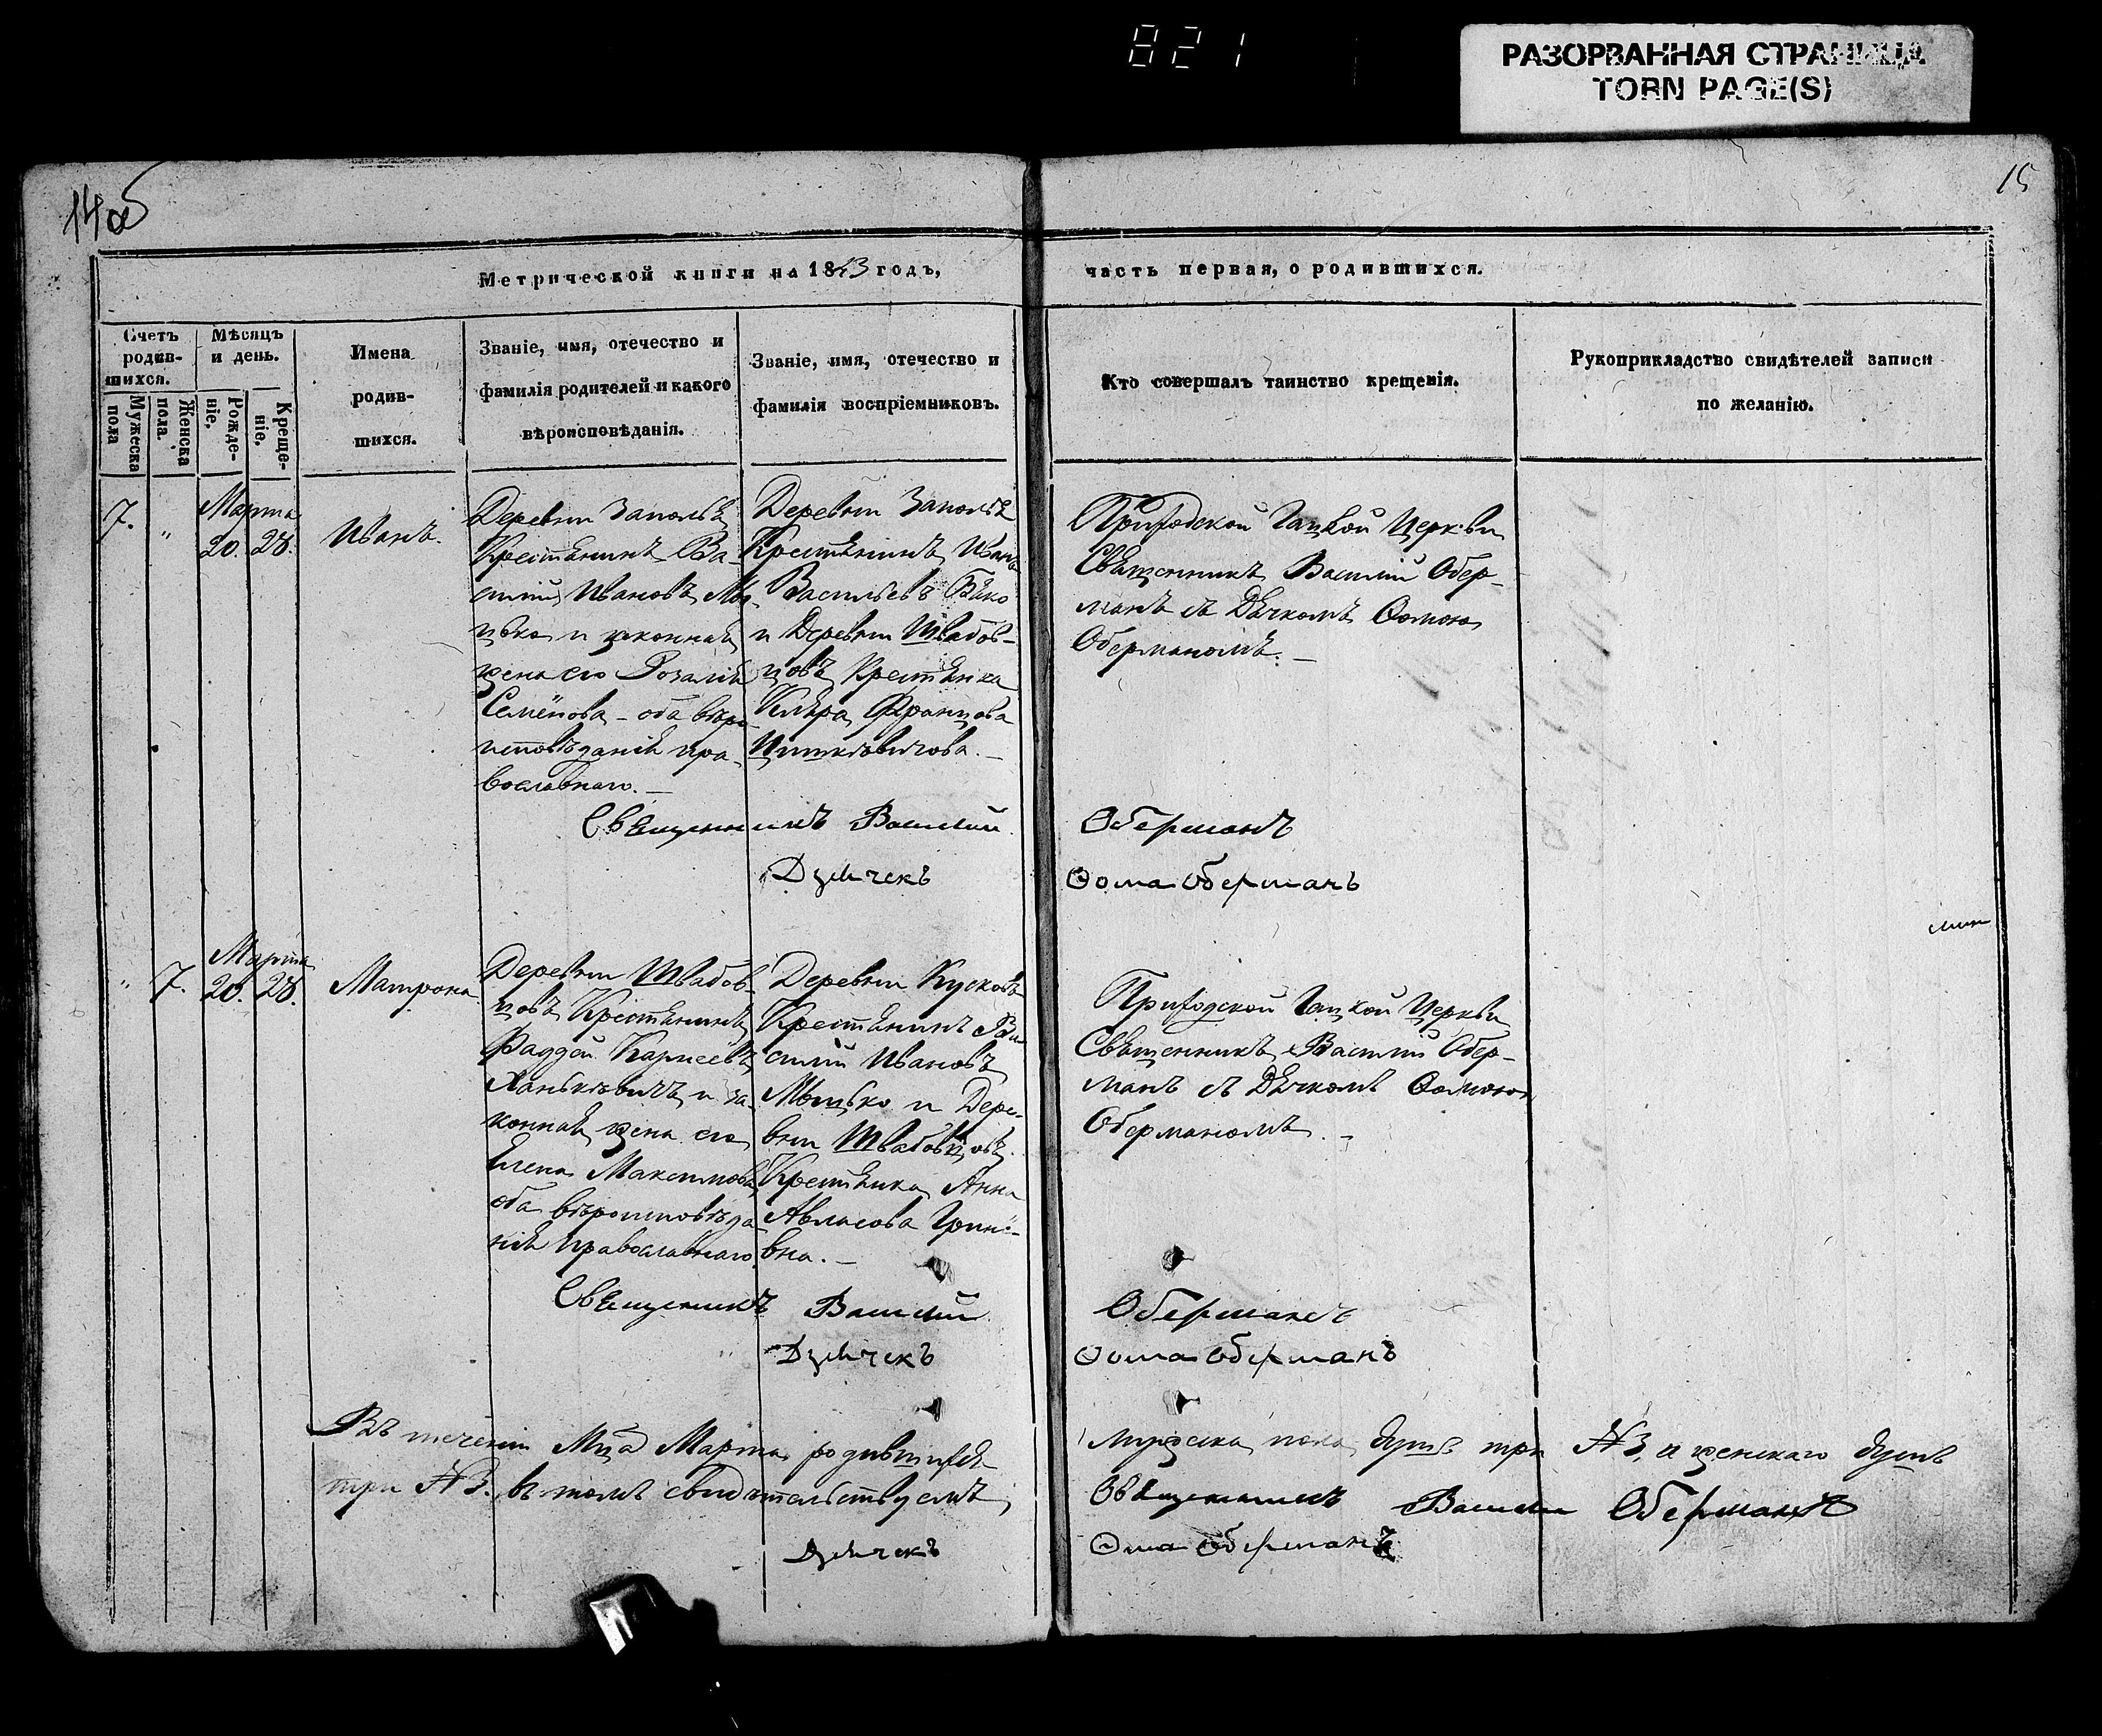 821
РАЗОРВАННАЯ СТРАНИЦА
TORN PAGE(S)
14об
15
Метрической книги на 1843 годъ,
часть первая, о родившихся.
Счетъ родив-шихся.
Мужеска пола
Женска пола.
Мѣсяцъ и день.
Рожде-ніе.
Креще-ніе.
Имена
родив-
шихся.
Званіе, имя, отечество и
фамилія родителей и какого
вѣроисповѣданія.
Званіе, имя, отечество и
фамилія воспріемниковъ.
Кто совершалъ таинство крещенія.
Рукоприкладство свидѣтелей записи
по желанію.
7.
"
Марта
20. 28.
Иванъ.
Деревни Заполья
Крестьянинъ Ва-
силій Ивановъ
и законная
жена его Розалія
Семёнова - оба вѣро-
исповѣданія пра-
вославнаго. —
Деревни Заполья
Крестьянинъ Иванъ
Васильевъ
и Деревни Швабов-
цовъ Крестьянка
Францова
Приходской Гацкой Церкви
Священникъ Василій Обер-
манъ съ Дьячкомъ Ѳомою
Оберманомъ. —
Священникъ Василій
Оберманъ
Дьячекъ
Ѳома Оберманъ
"
7.
Марта
20. 28.
Матрона
Деревни Швабов-
цовъ Крестьянинъ
Фаддей
Ханькѣвичъ и за-
конная жена его
Елена Максимова
оба вѣроисповѣда-
нія православнаго.
Деревни
Крестьянинъ Ва-
силій Ивановъ
Мицько и Дере-
вни Швабовцовъ
Крестьянка Анна
вна. —
Приходской Гацкой Церкви
Священникъ Василій Обер-
манъ съ Дьячкомъ Ѳомою
Оберманомъ. —
Священникъ Василій
Оберманъ
Дьячекъ
Ѳома Оберманъ
Въ теченіи Мца Марта родившихся
мужеска пола душъ три №3, а женскаго душъ
три №3. въ томъ свидѣтельствуемъ,
Священникъ Василій Оберманъ
Дьячекъ
Ѳома Оберманъ